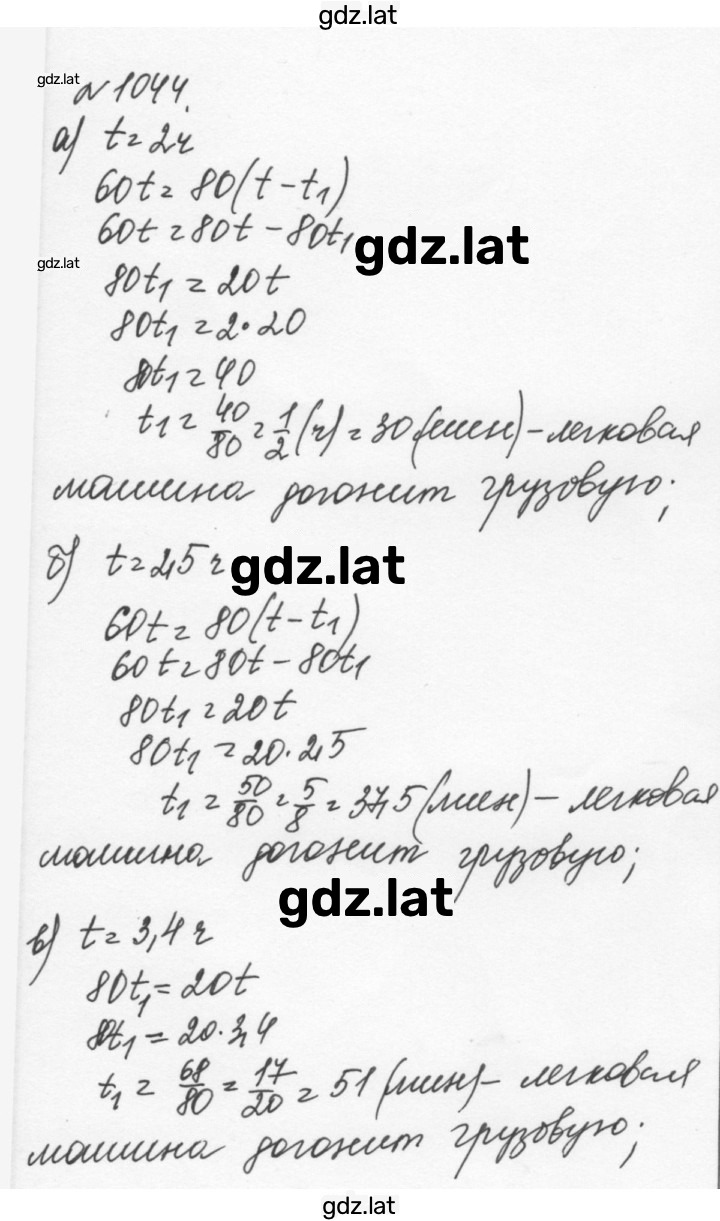 gdz.lat
gdz.lat
№1044.
а) t = 2ч
60t = 80(t - t₁)
60t = 80t - 80t₁
gdz.lat
gdz.lat
80t₁ = 20t
80t₁ = 2·20
80t₁ = 40
t₁ = 40/80 = 1/2 (ч) = 30 (мин) - легковая
машина догонит грузовую;
б) t = 2,5 ч
gdz.lat
60t = 80(t - t₁)
60t = 80t - 80t₁
80t₁ = 20t
80t₁ = 20·2,5
t₁ = 50/80 = 5/8 = 37,5 (мин) - легковая
машина догонит грузовую;
gdz.lat
в) t = 3,4 ч
80t₁ = 20t
80t₁ = 20·3,4
t₁ = 68/80 = 17/20 = 51 (мин) - легковая
машина догонит грузовую;
gdz.lat